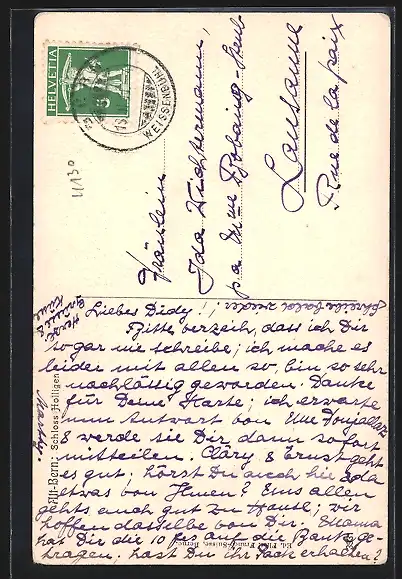 HELVETIA
5
WEISSENBÜHL
4130
Fräulein
Ida Dichtermann,
Lausanne
Rue de la paix
Schreibe bald wieder.
Herzl.
Grüsse &
Küsse
Liebes Didy!,
Bitte verzeih, dass ich Dir
so gar nie schreibe; ich mache es
leider mit allen so, bin so sehr
nachlässig geworden. Danke
für Deine Karte; ich erwarte
nun Antwort von Mme
& werde sie Dir dann sofort
mitteilen. Cläry & Ernst geht
es gut; hörst Du auch hie & da
etwas von Ihnen? Uns allen
gehts auch gut zu Hause; wir
hoffen dasselbe von Dir. Mama
hat Dir die 10 frs auf die Bank ge-
tragen. hast Du ihr Pack erhalten?
Alt-Bern: Schloss Holligen
Franco-Suisse, Berne